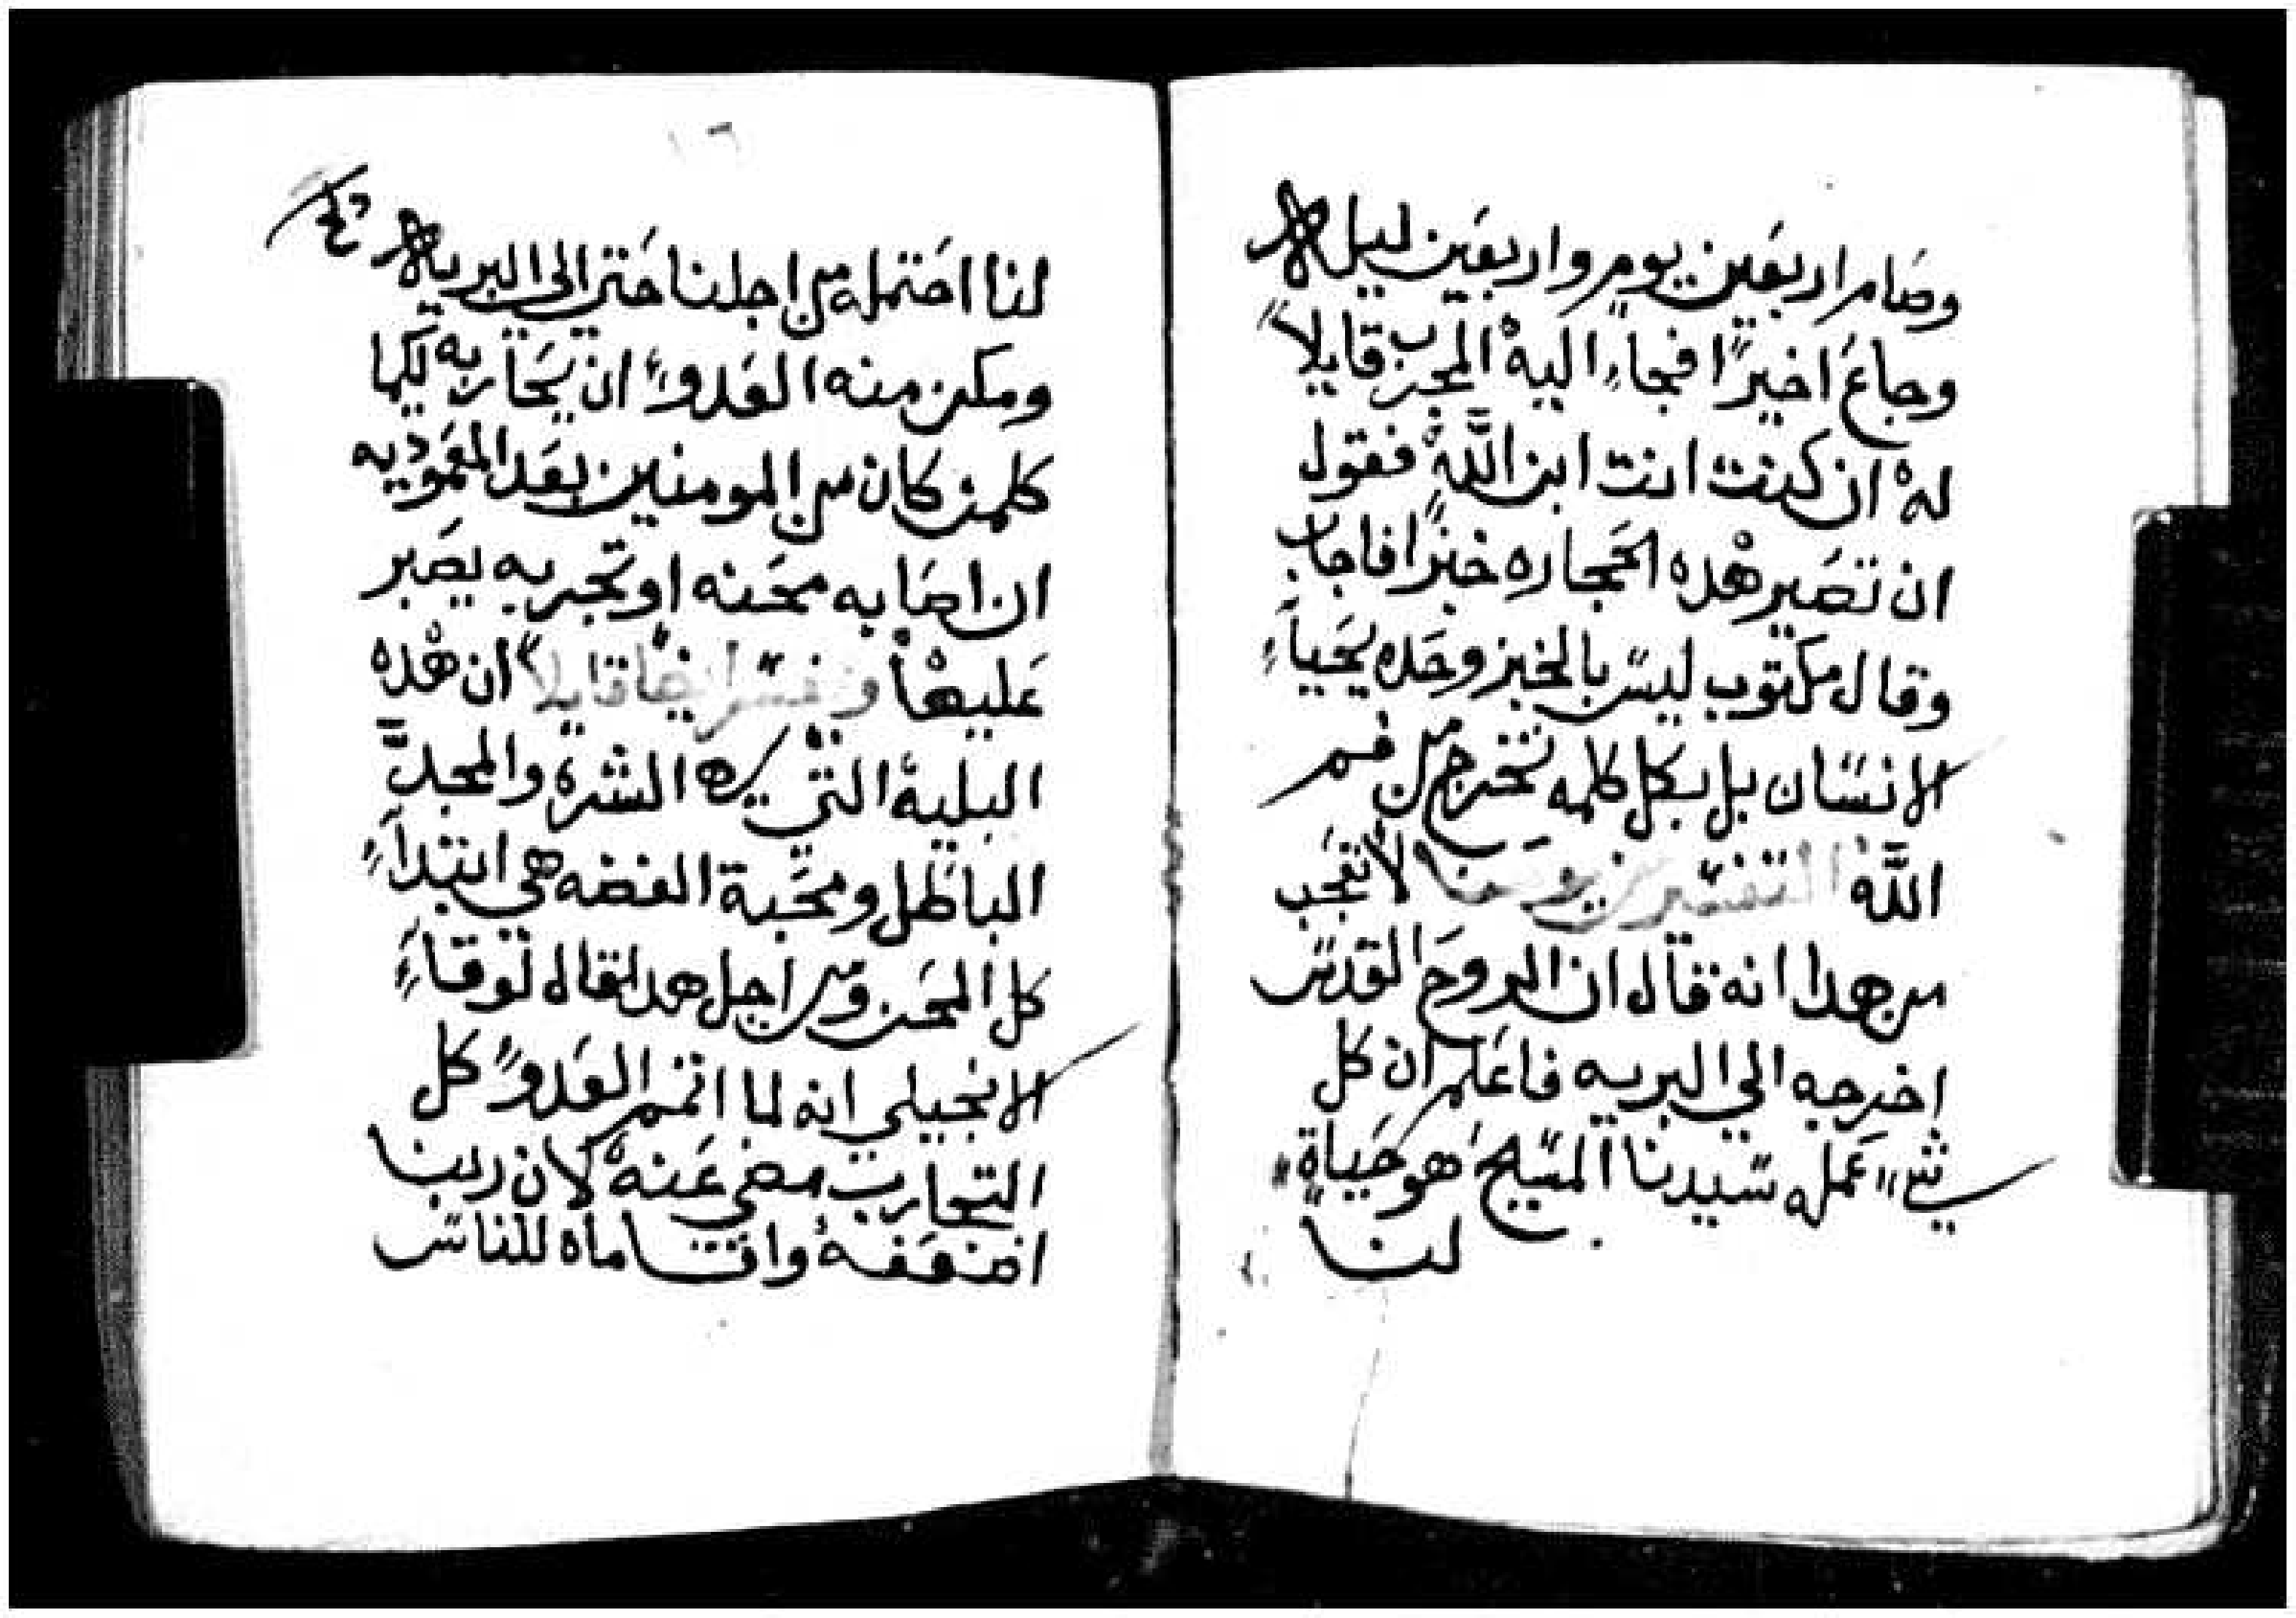 وصام اربعين يوم واربعين ليله
وجاع اخيرًا فجاء اليه المجرب قايلاً
له ان كنت انت ابن الله فقول
ان تصير هده الحجاره خبزًا فاجاب
وقال مكتوب ليس بالخبز وحده يحياء
الانسان بل بكل كلمه تخرج من فم
الله التفسير لا تعجب
من هدا انه قال ان الروح القدس
اخرجه الي البريه فاعلم ان كل
شي عمله سيدنا المسيح هو حياة
لنا
١٦
لنا احتمله من اجلنا حتى الى البريه
ومكن منه العدوا ان يحاربه لكيما
كلمن كان من المومنين بعد المعموديه
ان اصابه محنه او تجربه يصبر
عليها وفسر ايضًا قايلاً ان هده
البلية التي الشره والمجد
الباطل ومحبة الفضه هي ابتداء
كل المحن ومن اجل هدا قال لوقاء
الانجيلي انه لما اتم العدو كل
التجارب مضي عنه لان ربنا
اضعفه واقامه للناس